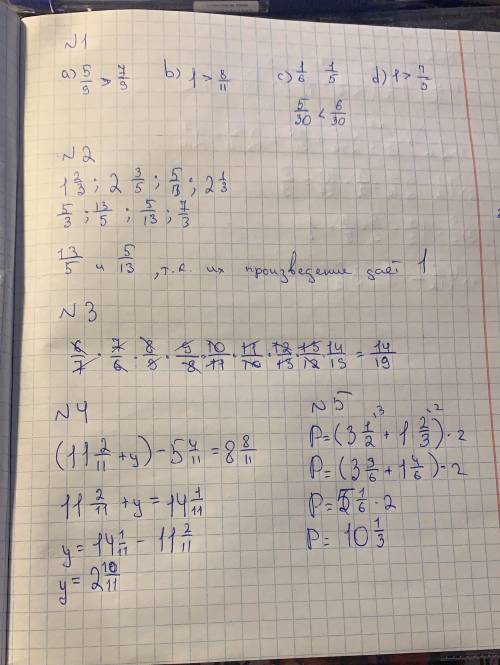 №1
a) 5/9 > 7/9 b) 1 > 8/11 c) 1/6 1/5 d) 1 > 7/9
5/30 < 6/30
№2
1 2/3 ; 2 3/5 ; 5/13 ; 2 1/3
5/3 ; 13/5 ; 5/13 ; 7/3
13/5 и 5/13 , т.к. их произведение даёт 1
№3
6/7 · 7/6 · 8/9 · 9/8 · 10/11 · 11/10 · 12/13 · 13/12 · 14/19 = 14/19
№4
(11 2/11 + y) - 5 4/11 = 8 8/11
11 2/11 + y = 14 1/11
y = 14 1/11 - 11 2/11
y = 2 10/11
№5
P = (3 1/2 ·3 + 1 2/3 ·2) · 2
P = (3 3/6 + 1 4/6) · 2
P = 5 1/6 · 2
P = 10 1/3